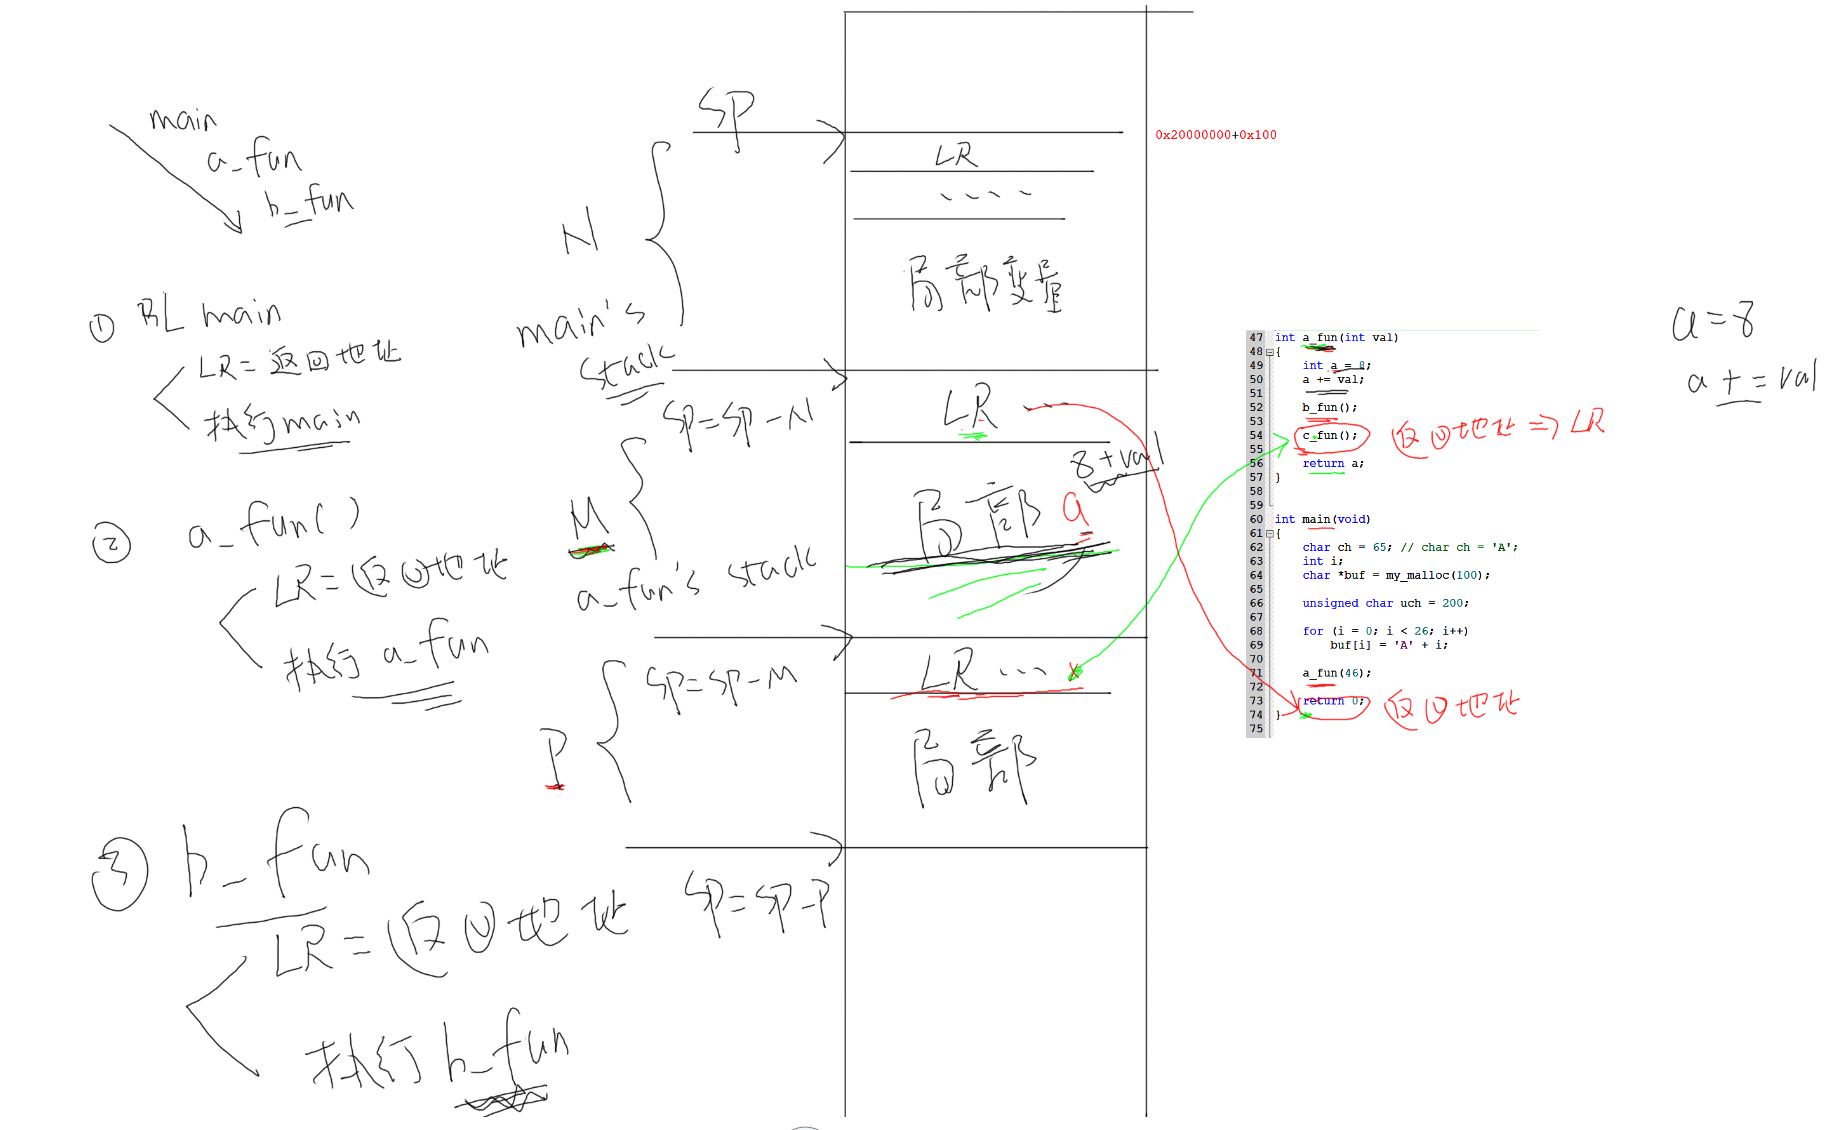 main
a_fun
b_fun
① BL main
LR=返回地址
执行main
② a_fun()
LR=返回地址
执行 a_fun
③ b_fun
LR=返回地址
执行 b_fun
SP
N
main's
stack
SP=SP-N
M
a_fun's stack
SP=SP-M
P
SP=SP-P
0x20000000+0x100
LR
....
局部变量
LR ...
8+val
局部 a
LR ...
局部
47 int a_fun(int val)
48 {
49 int a = 8;
50 a += val;
51
52 b_fun();
53
54 c_fun();
55
56 return a;
57 }
58
59
60 int main(void)
61 {
62 char ch = 65; // char ch = 'A';
63 int i;
64 char *buf = my_malloc(100);
65
66 unsigned char uch = 200;
67
68 for (i = 0; i < 26; i++)
69 buf[i] = 'A' + i;
70
71 a_fun(46);
72
73 return 0;
74 }
75
返回地址 => LR
返回地址
a=8
a+=val